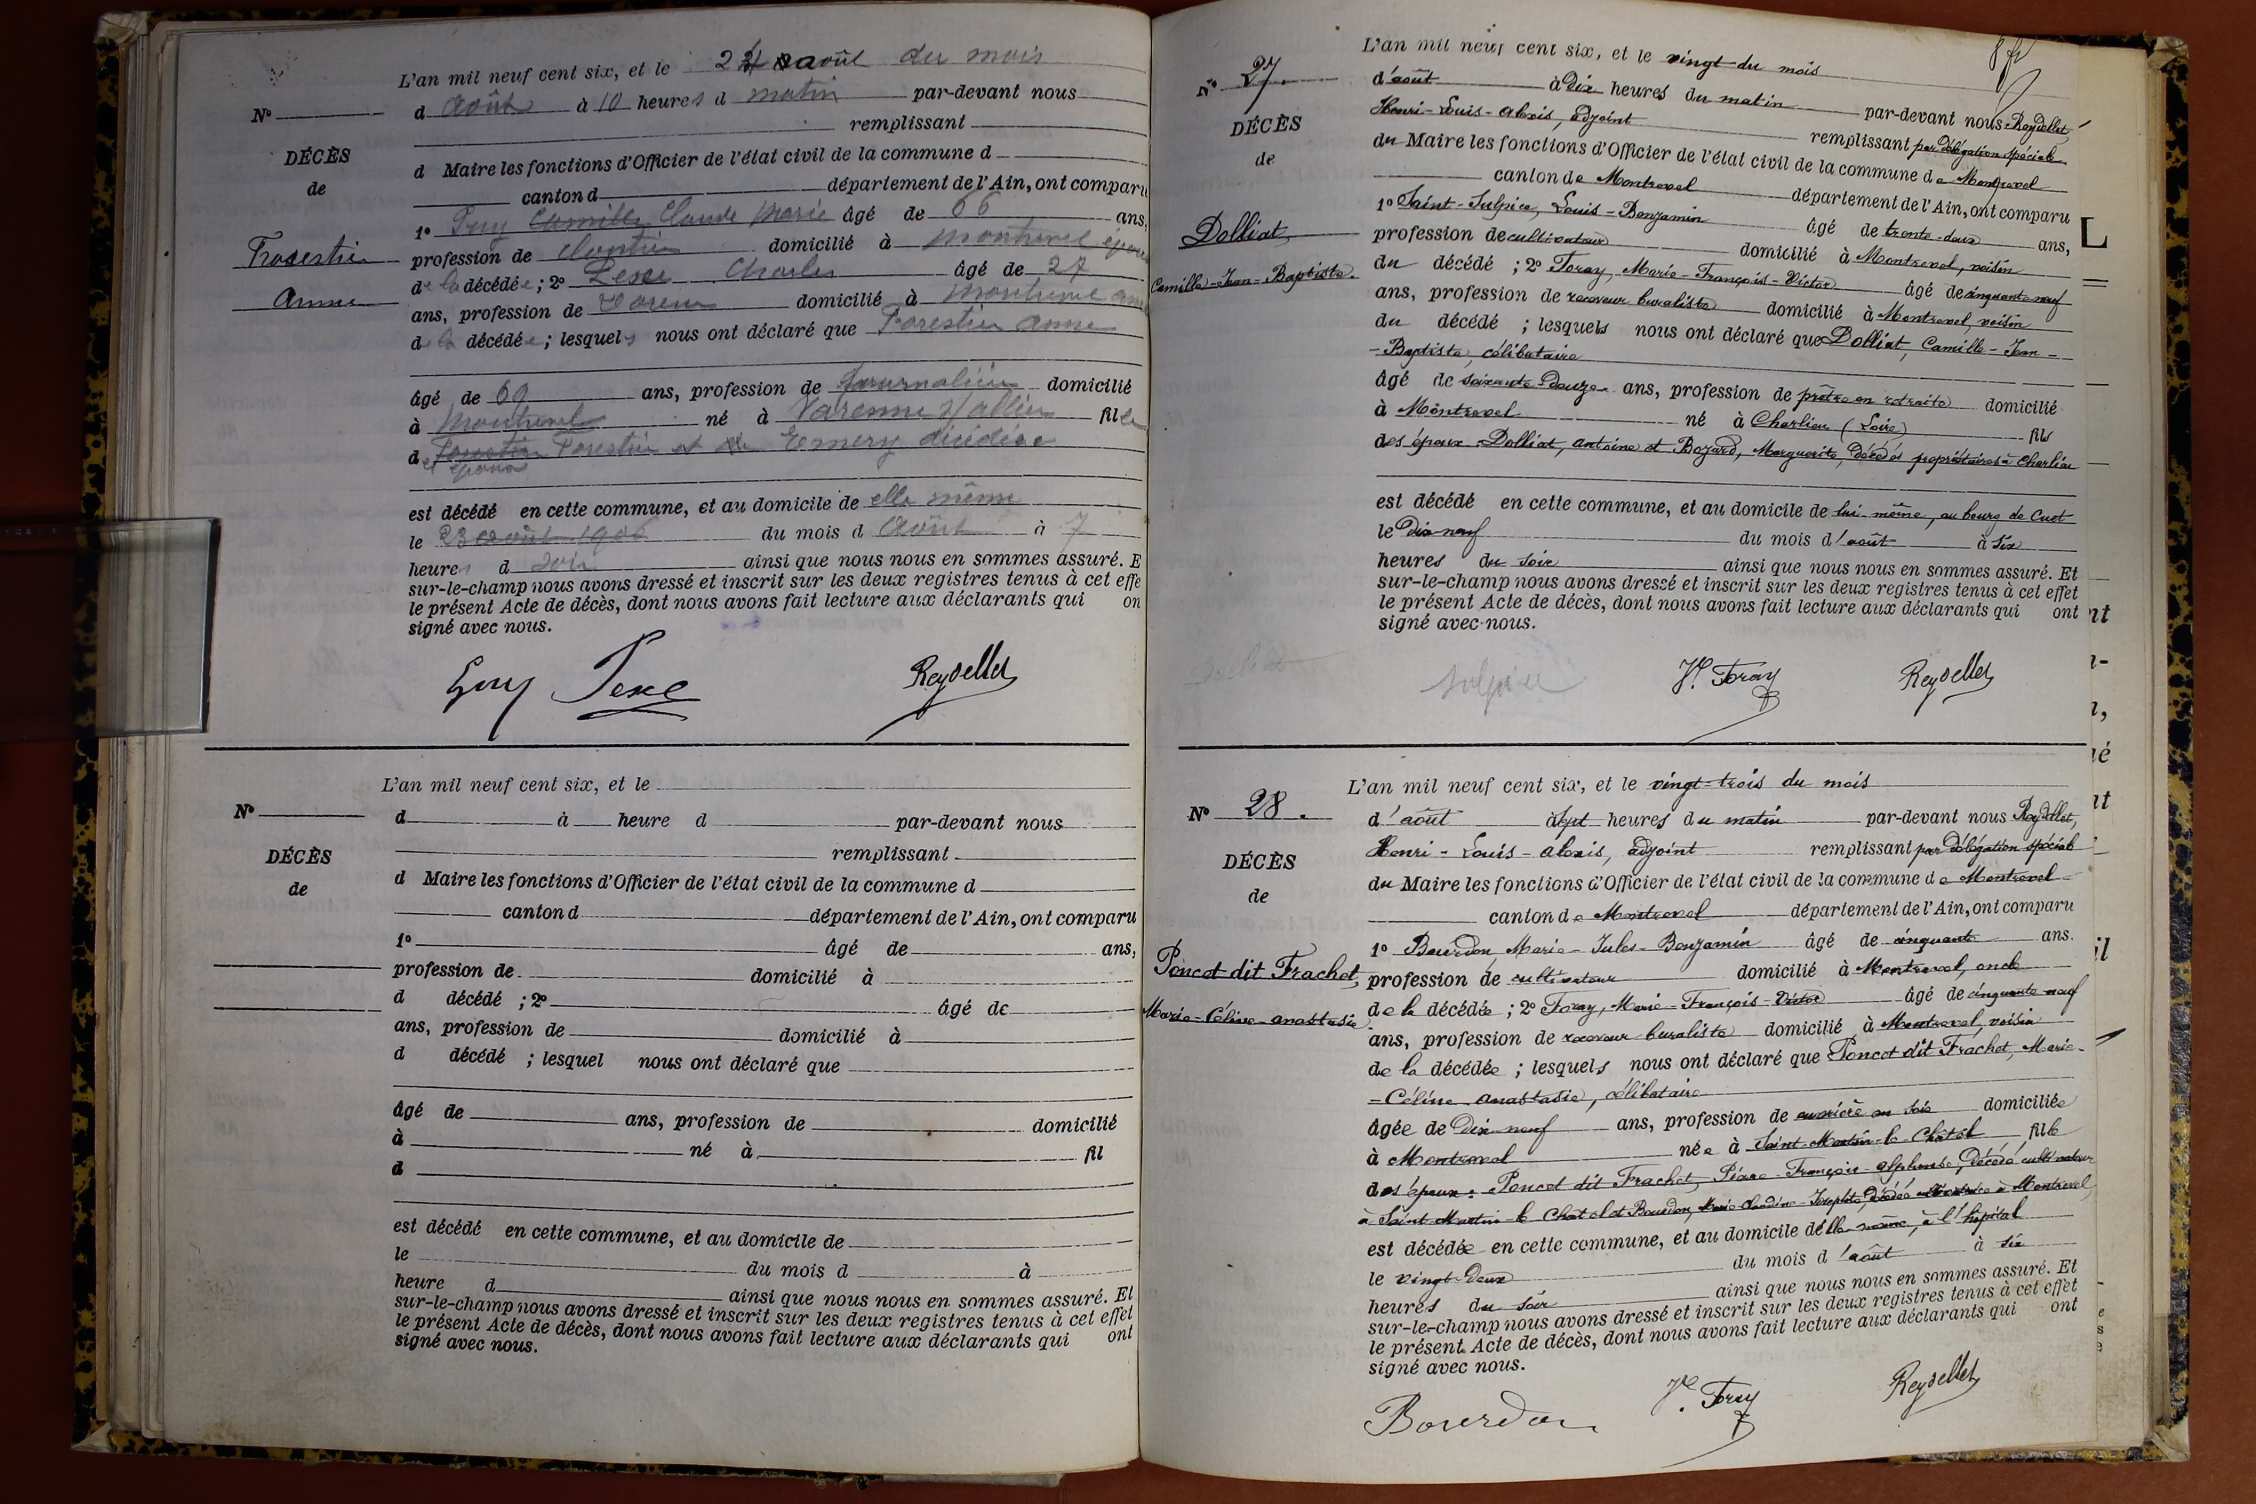 L'an mil neuf cent six, et le 24 août du mois
d août à 10 heures d matin par-devant nous
N°
remplissant
DÉCÈS
d Maire les fonctions d'Officier de l'état civil de la commune d
de
canton d département de l'Ain, ont comparu
1° Claude Marie âgé de 66 ans,
profession de domicilié à Montrevel époux
de la décédée ; 2° Pexe Charles âgé de 27
Anne
ans, profession de domicilié à Montrevel
de la décédée ; lesquels nous ont déclaré que Forestier Anne
âgé de 69 ans, profession de Journalière domicilié
à Montrevel né à Varenne fille
d Forestier et Emery décédés
est décédé en cette commune, et au domicile de elle même
le 23 août 1906 du mois d Août à 7
heures d soir ainsi que nous nous en sommes assuré. E
sur-le-champ nous avons dressé et inscrit sur les deux registres tenus à cet effe
le présent Acte de décès, dont nous avons fait lecture aux déclarants qui on
signé avec nous.
Guy Pexe Reydellet
L'an mil neuf cent six, et le
N°
d à heure d par-devant nous
remplissant
DÉCÈS
d Maire les fonctions d'Officier de l'état civil de la commune d
de
canton d département de l'Ain, ont comparu
1° âgé de ans,
profession de domicilié à
d décédé ; 2° âgé de
ans, profession de domicilié à
d décédé ; lesquel nous ont déclaré que
âgé de ans, profession de domicilié
à né à fil
d
est décédé en cette commune, et au domicile de
le du mois d à
heure d ainsi que nous nous en sommes assuré. Et
sur-le-champ nous avons dressé et inscrit sur les deux registres tenus à cet effet
le présent Acte de décès, dont nous avons fait lecture aux déclarants qui ont
signé avec nous.
L'an mil neuf cent six, et le vingt du mois
N° 27.
d'août à Dix heures du matin par-devant nous Reydellet,
Henri-Louis-Alexis, adjoint remplissant par délégation spéciale
DÉCÈS
du Maire les fonctions d'Officier de l'état civil de la commune de Montrevel
de
canton de Montrevel département de l'Ain, ont comparu
1° Saint-Sulpice, Louis-Benjamin âgé de trente-deux ans,
Dolliat
profession de cultivateur domicilié à Montrevel, voisin
Camille-Jean-Baptiste.
du décédé ; 2° Foray, Marie-François-Victor âgé de cinquante-neuf
ans, profession de receveur buraliste domicilié à Montrevel, voisin
du décédé ; lesquels nous ont déclaré que Dolliat, Camille-Jean-
-Baptiste, célibataire
âgé de soixante-douze ans, profession de prêtre en retraite domicilié
à Montrevel né à Charlieu (Loire) fils
des époux : Dolliat, Antoine et Bozard, Marguerite, décédés propriétaires à Charlieu
est décédé en cette commune, et au domicile de lui-même, au bourg de Cuet
le Dix-neuf du mois d'août à six
heures du soir ainsi que nous nous en sommes assuré. Et
sur-le-champ nous avons dressé et inscrit sur les deux registres tenus à cet effet
le présent Acte de décès, dont nous avons fait lecture aux déclarants qui ont
signé avec nous.
Sulpice Vr. Foray Reydellet
L'an mil neuf cent six, et le vingt-trois du mois
N° 28.
d'août à sept heures du matin par-devant nous Reydellet,
Henri-Louis-Alexis, adjoint remplissant par délégation spéciale
DÉCÈS
du Maire les fonctions d'Officier de l'état civil de la commune de Montrevel
de
canton de Montrevel département de l'Ain, ont comparu
1° Bourdon, Marie-Jules-Benjamin âgé de cinquante ans.
Poncet dit Frachet,
profession de cultivateur domicilié à Montrevel, oncle
Marie-Céline-Anastasie
de la décédée ; 2° Foray, Marie-François-Victor âgé de cinquante-neuf
ans, profession de receveur buraliste domicilié à Montrevel, voisin
de la décédée ; lesquels nous ont déclaré que Poncet dit Frachet, Marie-
-Céline-Anastasie, célibataire
âgée de Dix-neuf ans, profession de ouvrière en soie domiciliée
à Montrevel née à Saint-Martin-le-Châtel fille
des époux : Poncet dit Frachet, Pierre-François-Alphonse, décédé cultivateur
à Saint-Martin-le-Châtel et Bourdon, Marie-Claudine-Josephte, décédée à Montrevel,
est décédée en cette commune, et au domicile d'elle-même, à l'hôpital
le vingt-deux du mois d'août à six
heures du soir ainsi que nous nous en sommes assuré. Et
sur-le-champ nous avons dressé et inscrit sur les deux registres tenus à cet effet
le présent Acte de décès, dont nous avons fait lecture aux déclarants qui ont
signé avec nous.
Bourdon Vr. Foray Reydellet